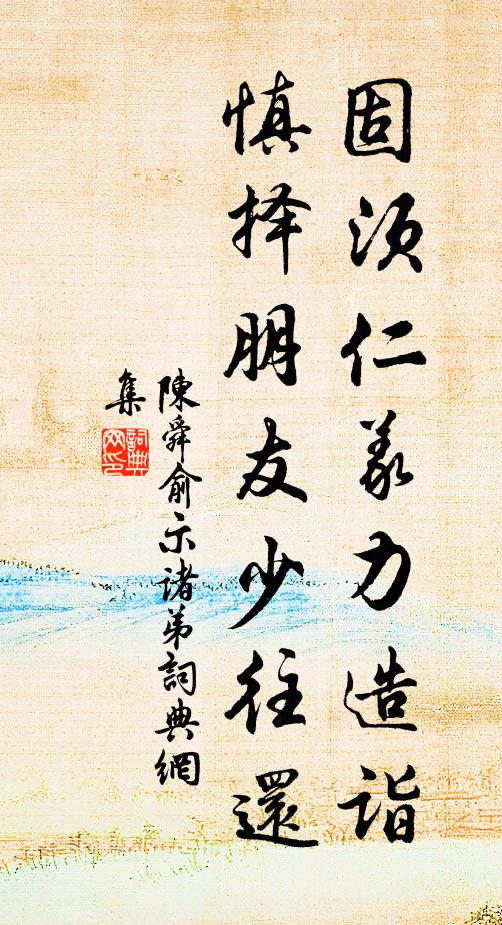 固须仁義力造詣
慎择朋友少往還
陳舜俞示诸弟詞典網
集
詞典
网印